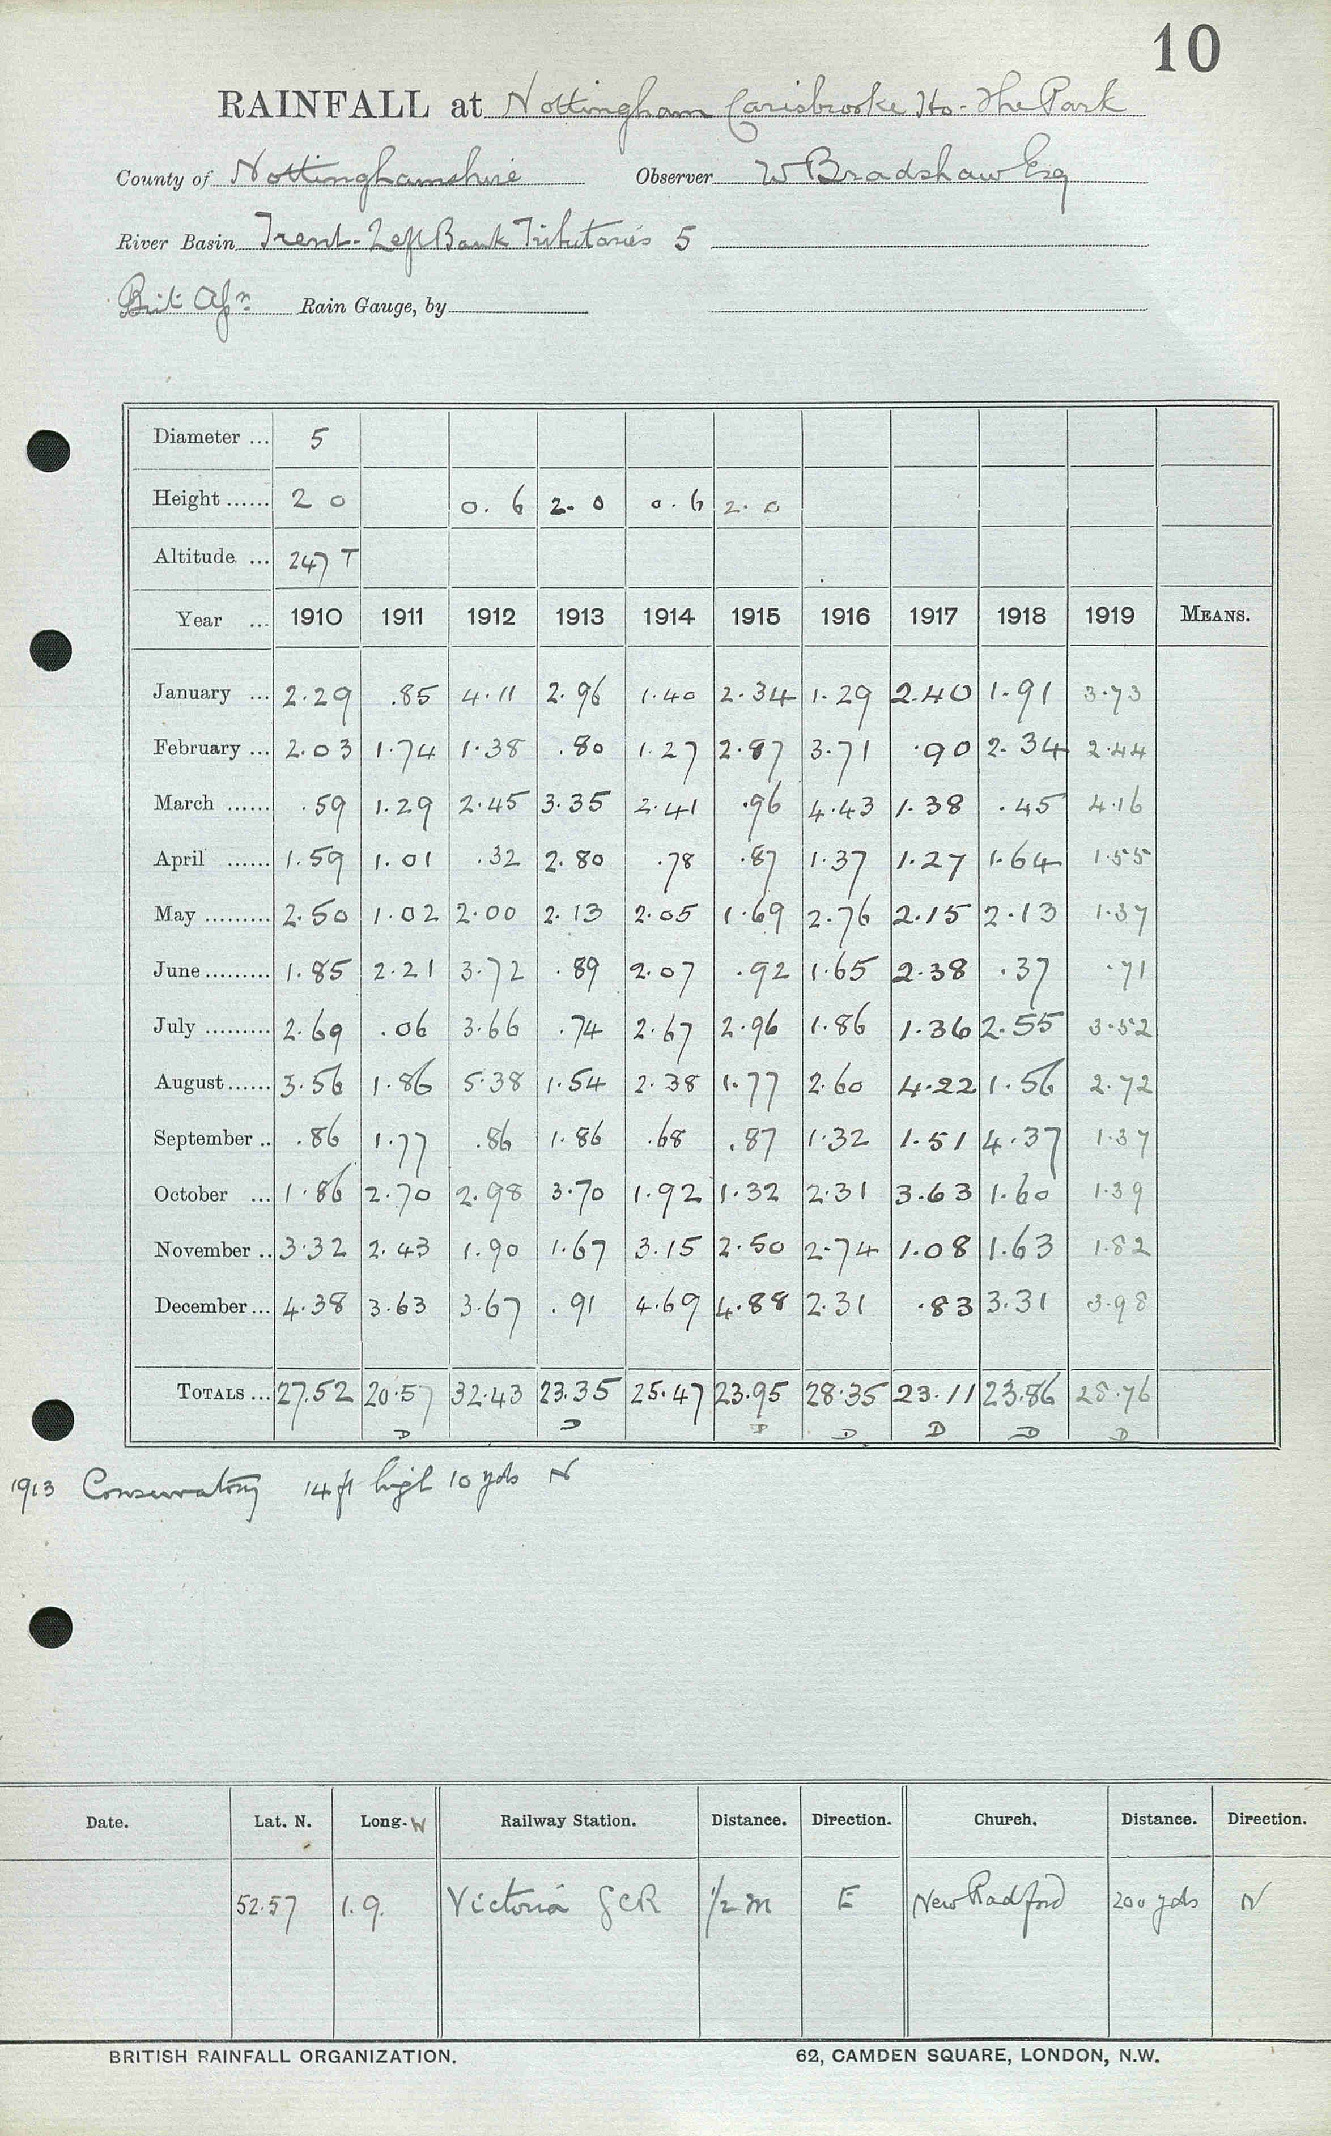 10
RAINFALL at Nottingham Carisbrooke Ho. The Park
County of Nottinghamshire Observer W Bradshaw Esq
River Basin Trent-Left Bank Tributaries 5
Brit Assn Rain Gauge, by
Diameter ... 5
Height ...... 2 0 0.6 2.0 0.6 2.0
Altitude ... 247 T
Year ... 1910 1911 1912 1913 1914 1915 1916 1917 1918 1919 MEANS.
January ... 2.29 .85 4.11 2.96 1.40 2.34 1.29 2.40 1.91 3.73
February ... 2.03 1.74 1.38 .80 1.27 2.87 3.71 .90 2.34 2.44
March ...... .59 1.29 2.45 3.35 2.41 .96 4.43 1.38 .45 4.16
April ...... 1.59 1.01 .32 2.80 .78 .87 1.37 1.27 1.64 1.55
May ......... 2.50 1.02 2.00 2.13 2.05 1.69 2.76 2.15 2.13 1.37
June ......... 1.85 2.21 3.72 .89 2.07 .92 1.65 2.38 .37 .71
July ......... 2.69 .06 3.66 .74 2.67 2.96 1.86 1.36 2.55 3.52
August ...... 3.56 1.86 5.38 1.54 2.38 1.77 2.60 4.22 1.56 2.72
September .. .86 1.77 .86 1.86 .68 .87 1.32 1.51 4.37 1.37
October ... 1.86 2.70 2.98 3.70 1.92 1.32 2.31 3.63 1.60 1.39
November .. 3.32 2.43 1.90 1.67 3.15 2.50 2.74 1.08 1.63 1.82
December ... 4.38 3.63 3.67 .91 4.69 4.88 2.31 .83 3.31 3.98
TOTALS ... 27.52 20.57 32.43 23.35 25.47 23.95 28.35 23.11 23.86 28.76
D D D D D D D
1913 Conservatory 14 ft high 10 yds N
Date. Lat. N. Long. W Railway Station. Distance. Direction. Church. Distance. Direction.
52.57 1.9. Victoria GCR 1/2 m E New Radford 200 yds N
BRITISH RAINFALL ORGANIZATION. 62, CAMDEN SQUARE, LONDON, N.W.